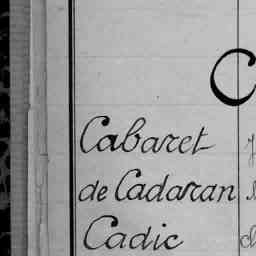 C
Cabaret
de Cadaran
Cadic